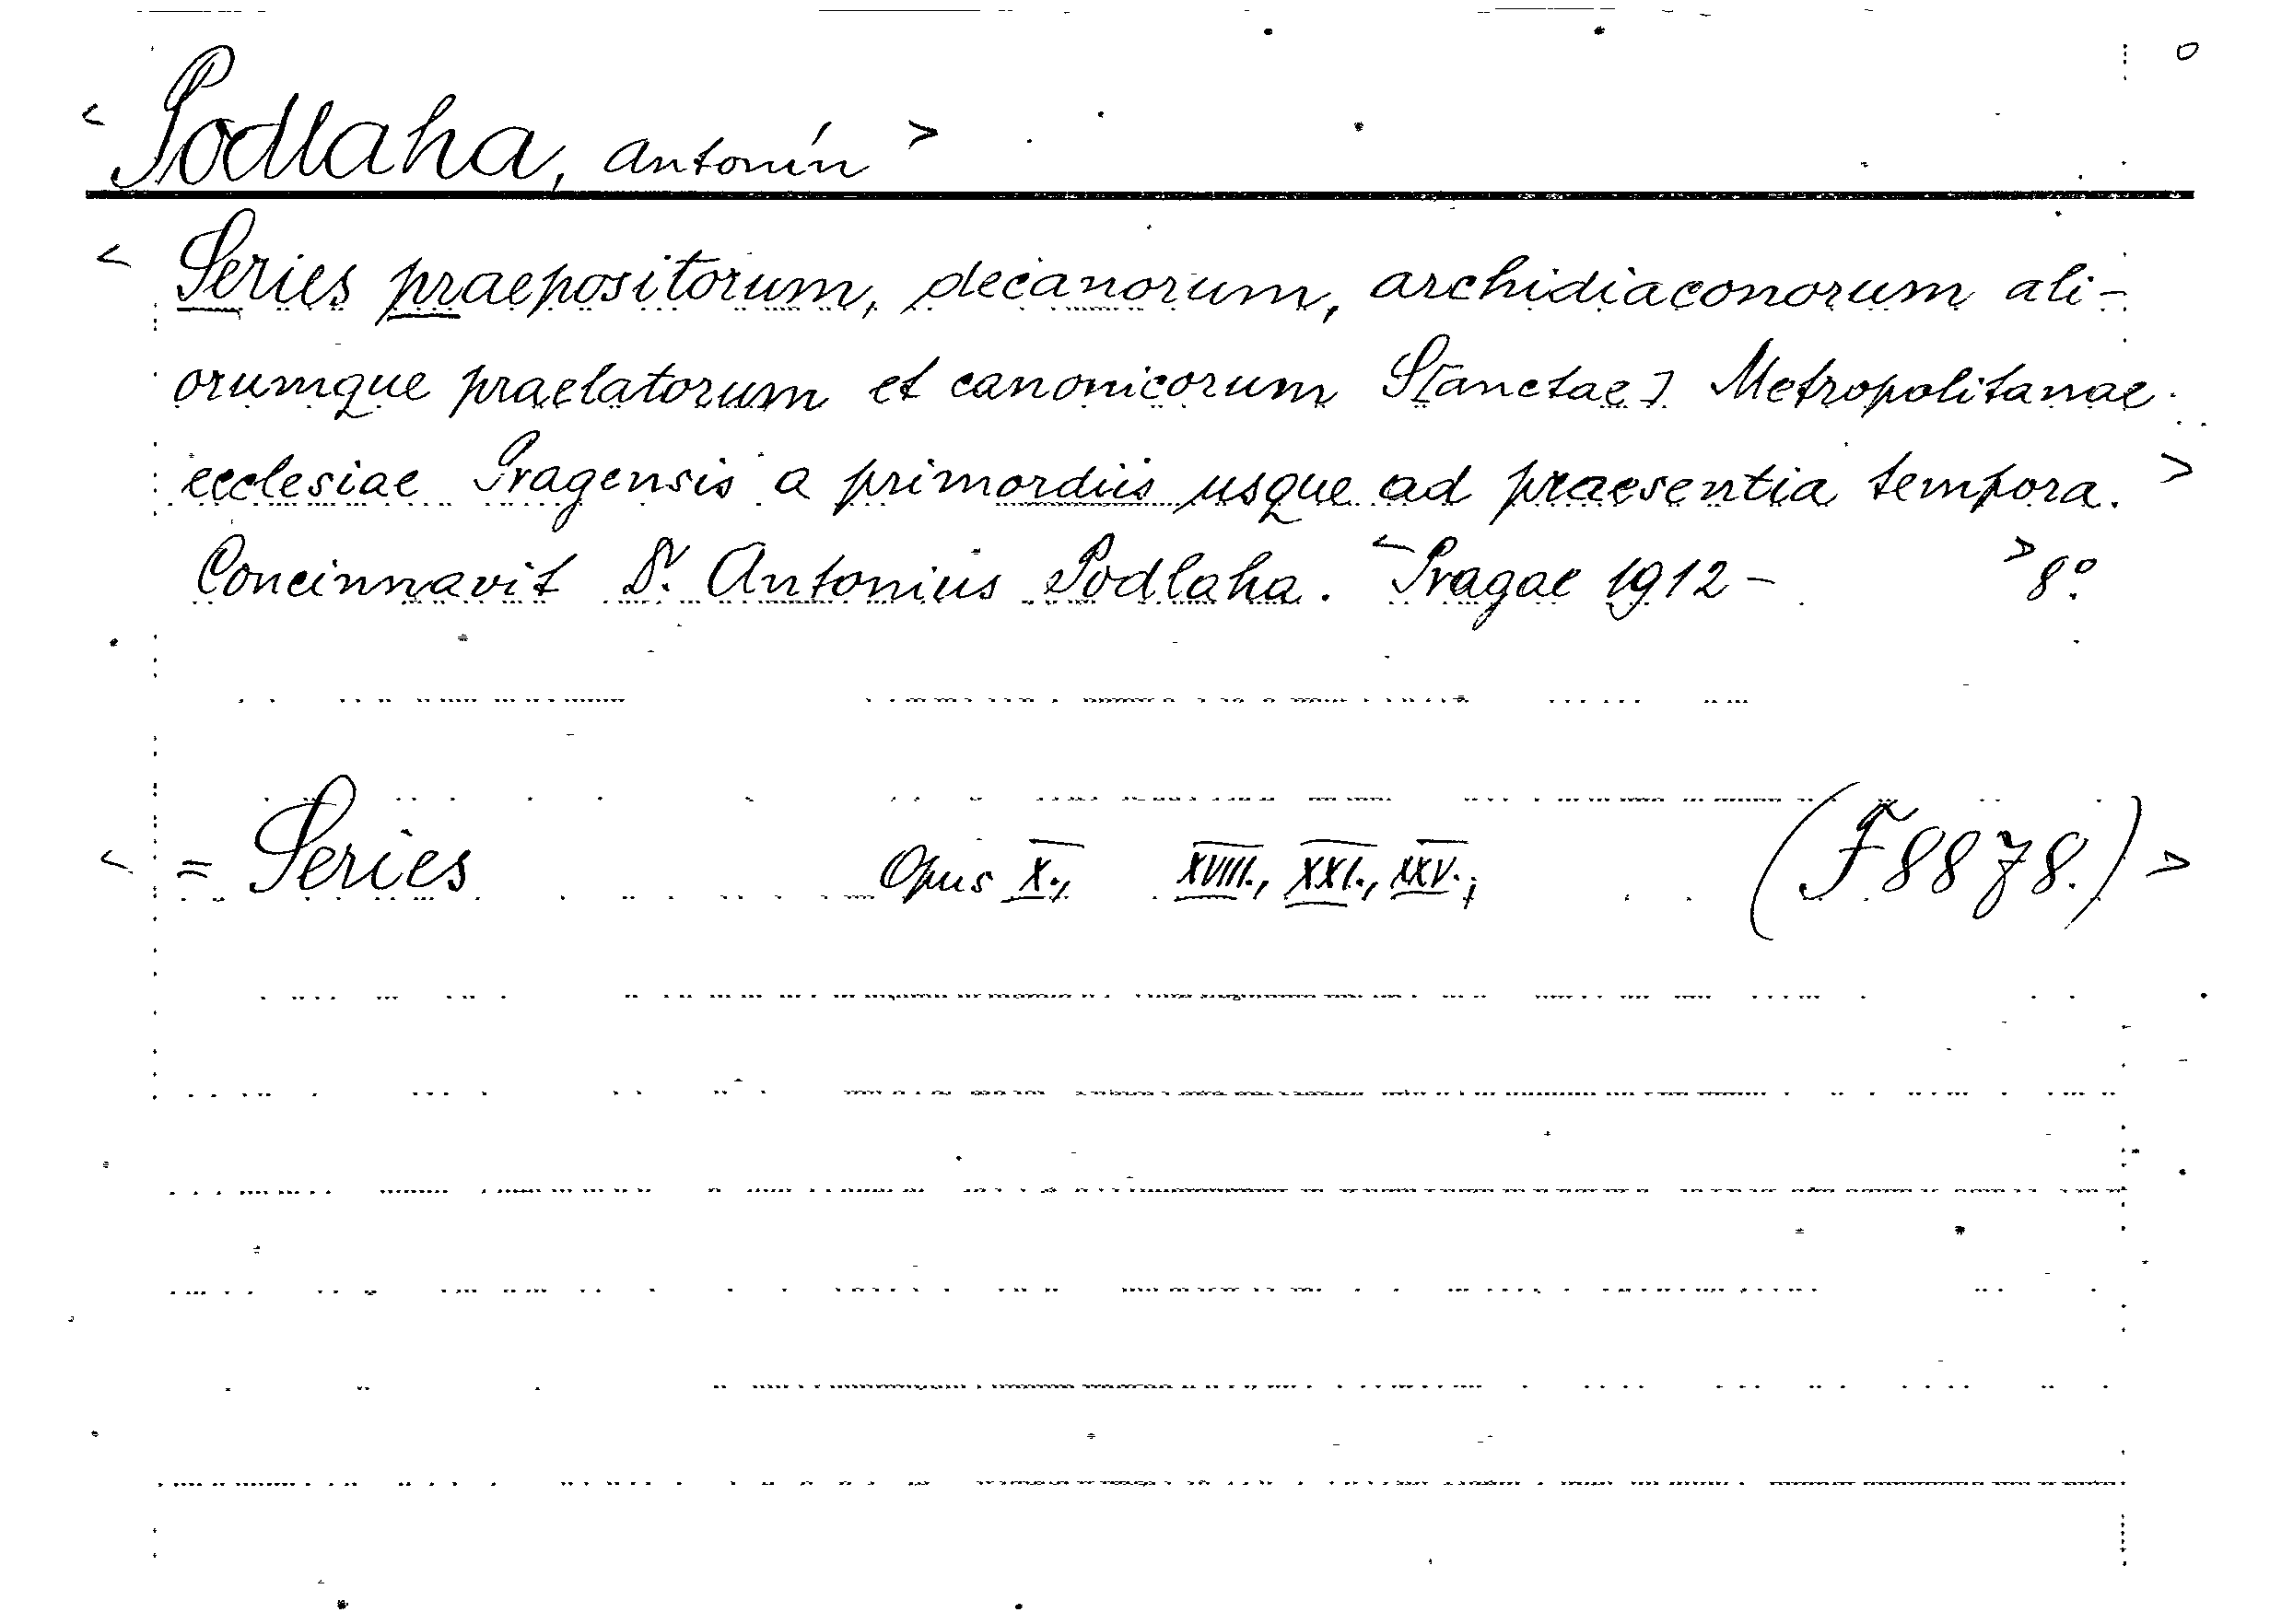 < Podlaha, Antonín >
< Series praepositorum, decanorum, archidiaconorum ali-
orumque praelatorum et canonicorum S[anctae] Metropolitanae
ecclesiae Pragensis a primordiis usque ad praesentia tempora. >
Concinnavit Dr. Antonius Podlaha. < Pragae 1912 - > 8º.
< = Series Opus X., XVIII., XXI., XXV.; (F 8878.) >